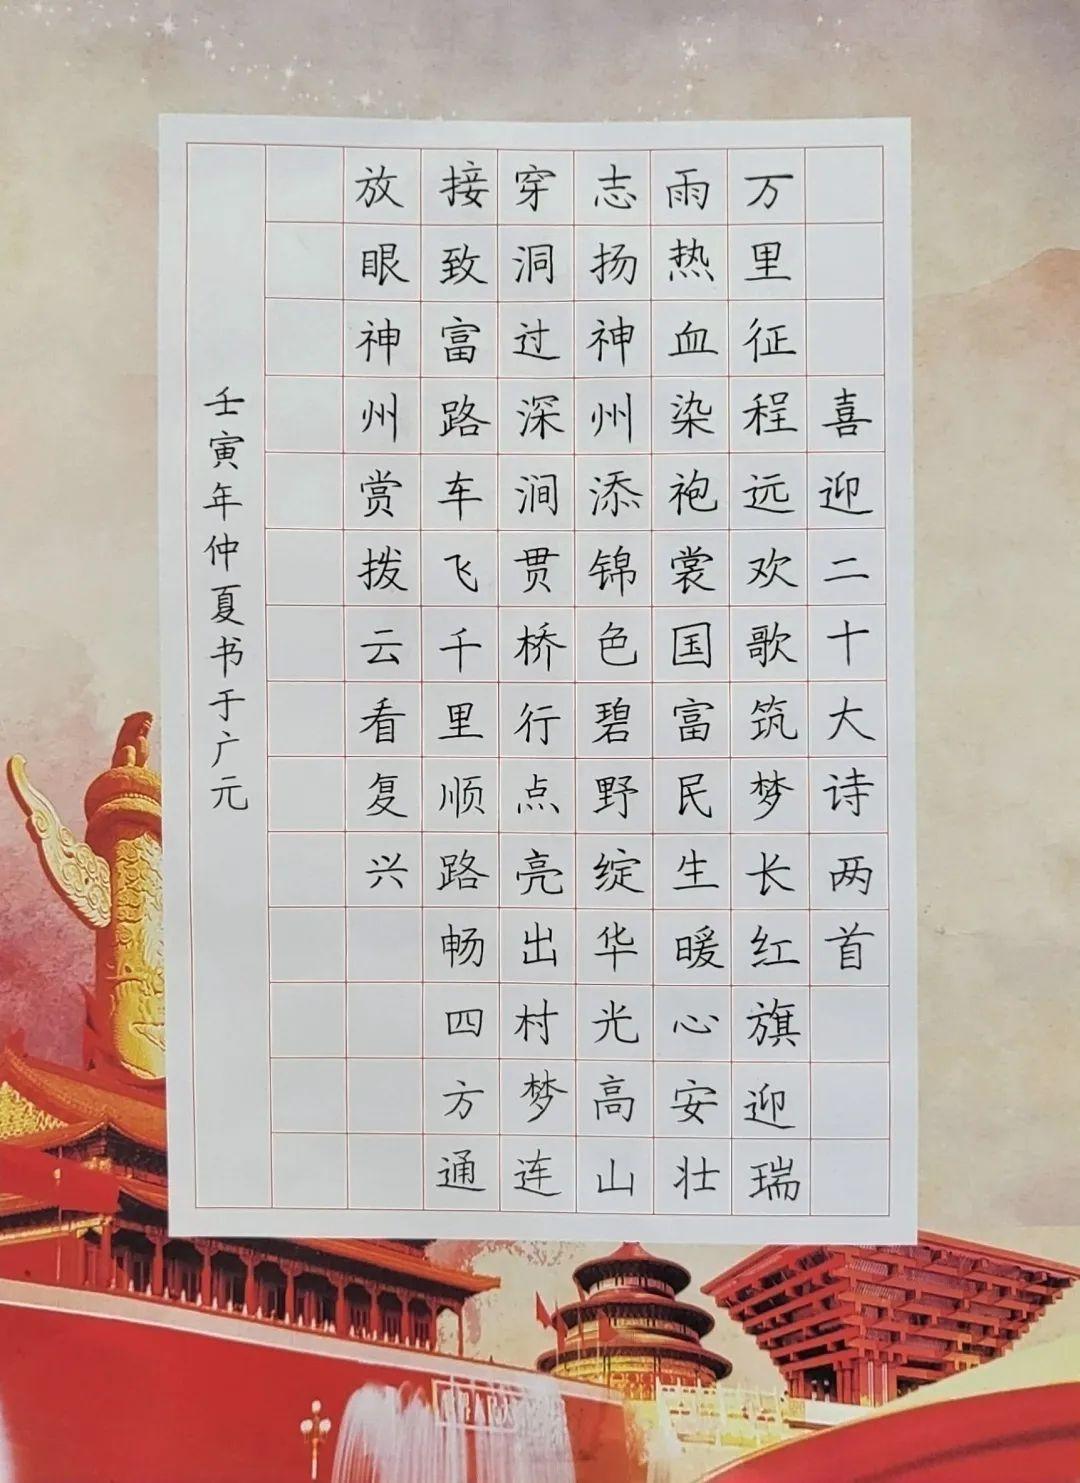 喜迎二十大诗两首
万里征程远欢歌筑梦长红旗迎瑞
雨热血染袍裳国富民生暖心安壮
志扬神州添锦色碧野绽华光高山
穿洞过深涧贯桥行点亮出村梦连
接致富路车飞千里顺路畅四方通
放眼神州赏拨云看复兴
壬寅年仲夏书于广元